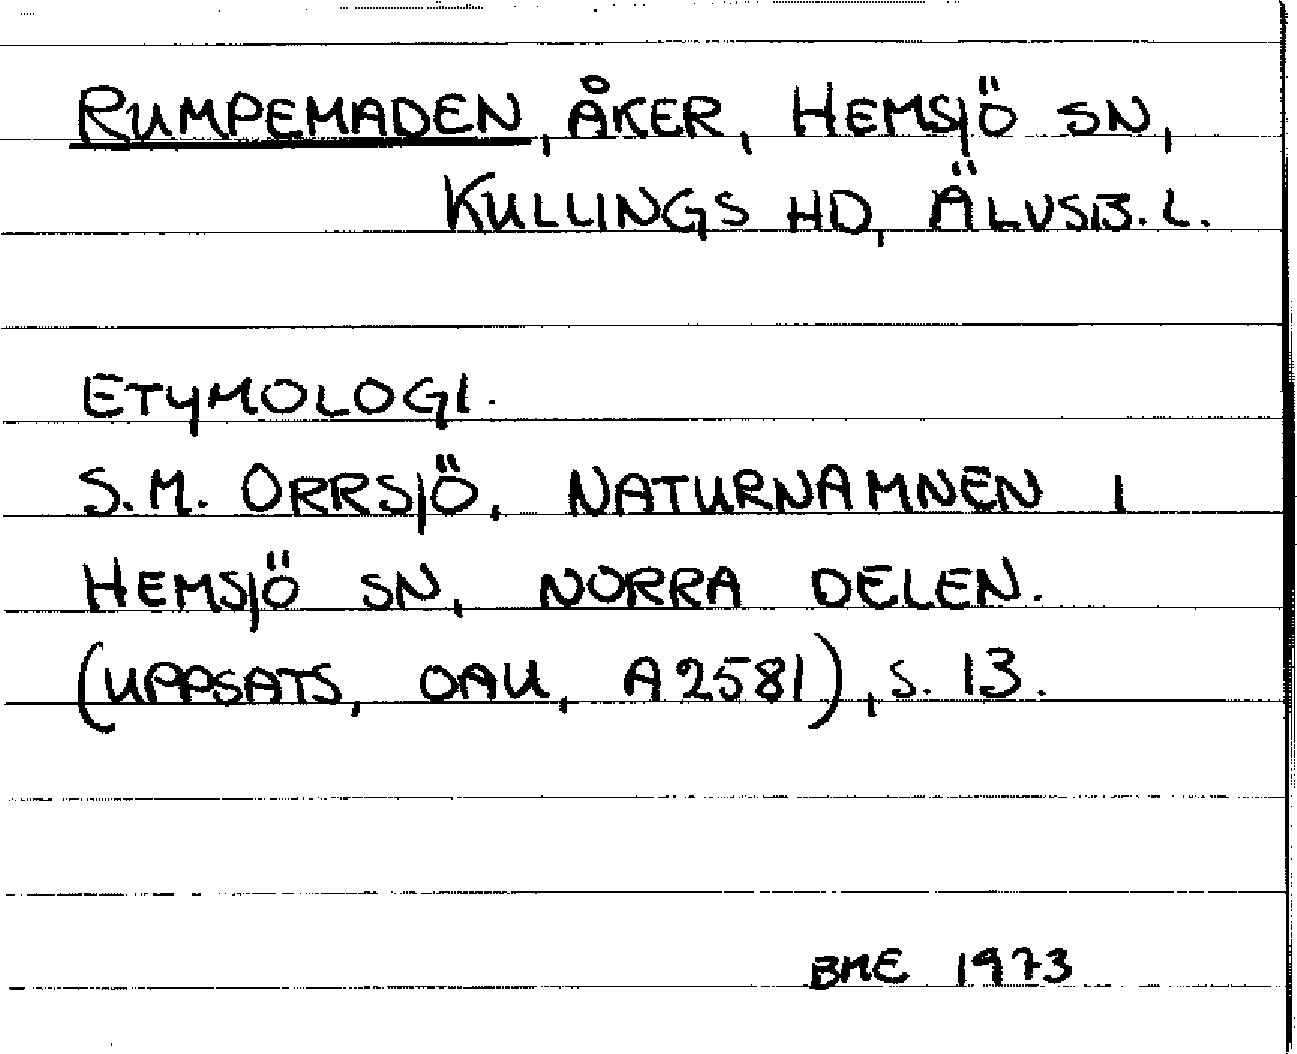 RUMPEMADEN, ÅKER, HEMSJÖ SN,
KULLINGS HD, ÄLVSB. L.
ETYMOLOGI.
S.M. ORRSJÖ, NATURNAMNEN I
HEMSJÖ SN, NORRA DELEN.
(UPPSATS, OAU, A2581), S. 13.
BME 1973